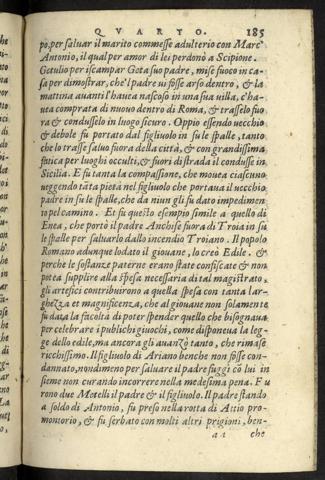 QVARTO. 185
po, per saluar il marito commesse adulterio con Marc'
Antonio, il qual per amor di lei perdonò a Scipione.
Getulio per iscampar Geta suo padre, mise fuoco in ca-
sa per dimostrar, che'l padre ui fosse arso dentro, & la
mattina auanti l'haueua nascoso in una sua uilla, c'ha-
ueua comprata di nuouo dentro di Roma, & trasselo fuo
ra & condusselo in luogo sicuro. Oppio essendo uecchio
& debole fu portato dal figliuolo in su le spalle, tanto
che lo trasse saluo fuora della città, & con grandissima
fatica per luoghi occulti, & fuori di strada il condusse in
Sicilia. E fu tanta la compassione, che moueua ciascuno
ueggendo tāta pietà nel figliuolo che portaua il uecchio
padre in su le spalle, che da niun gli fu dato impedimen-
to pel camino. Et fu questo esempio simile a quello di
Enea, che portò il padre Anchise fuora di Troia in su
le spalle per saluarlo dallo incendio Troiano. Il popolo
Romano adunque lodato il giouane, lo creò Edile. &
perche le sostanze paterne erano state confiscate & non
potea supplire alla spesa necessaria di tal magistrato,
gli artefici contribuirono a quella spesa con tanta lar-
ghezza et magnificenza, che al giouane non solamente
fu data la facoltà di poter spender quello che bisognaua
per celebrare i publichi giuochi, come disponeua la leg-
ge dello edile, ma ancora gli auanzò tanto, che rimase
ricchissimo. Il figliuolo di Ariano benche non fosse con-
dannato, nondimeno per saluare il padre fuggì cō lui in
sieme non curando incorrere nella medesima pena. Fu
rono due Metelli il padre & il figliuolo. Il padre stando
a soldo di Antonio, fu preso nella rotta di Attio pro-
montorio, & fu serbato con molti altri prigioni, ben-
aa che